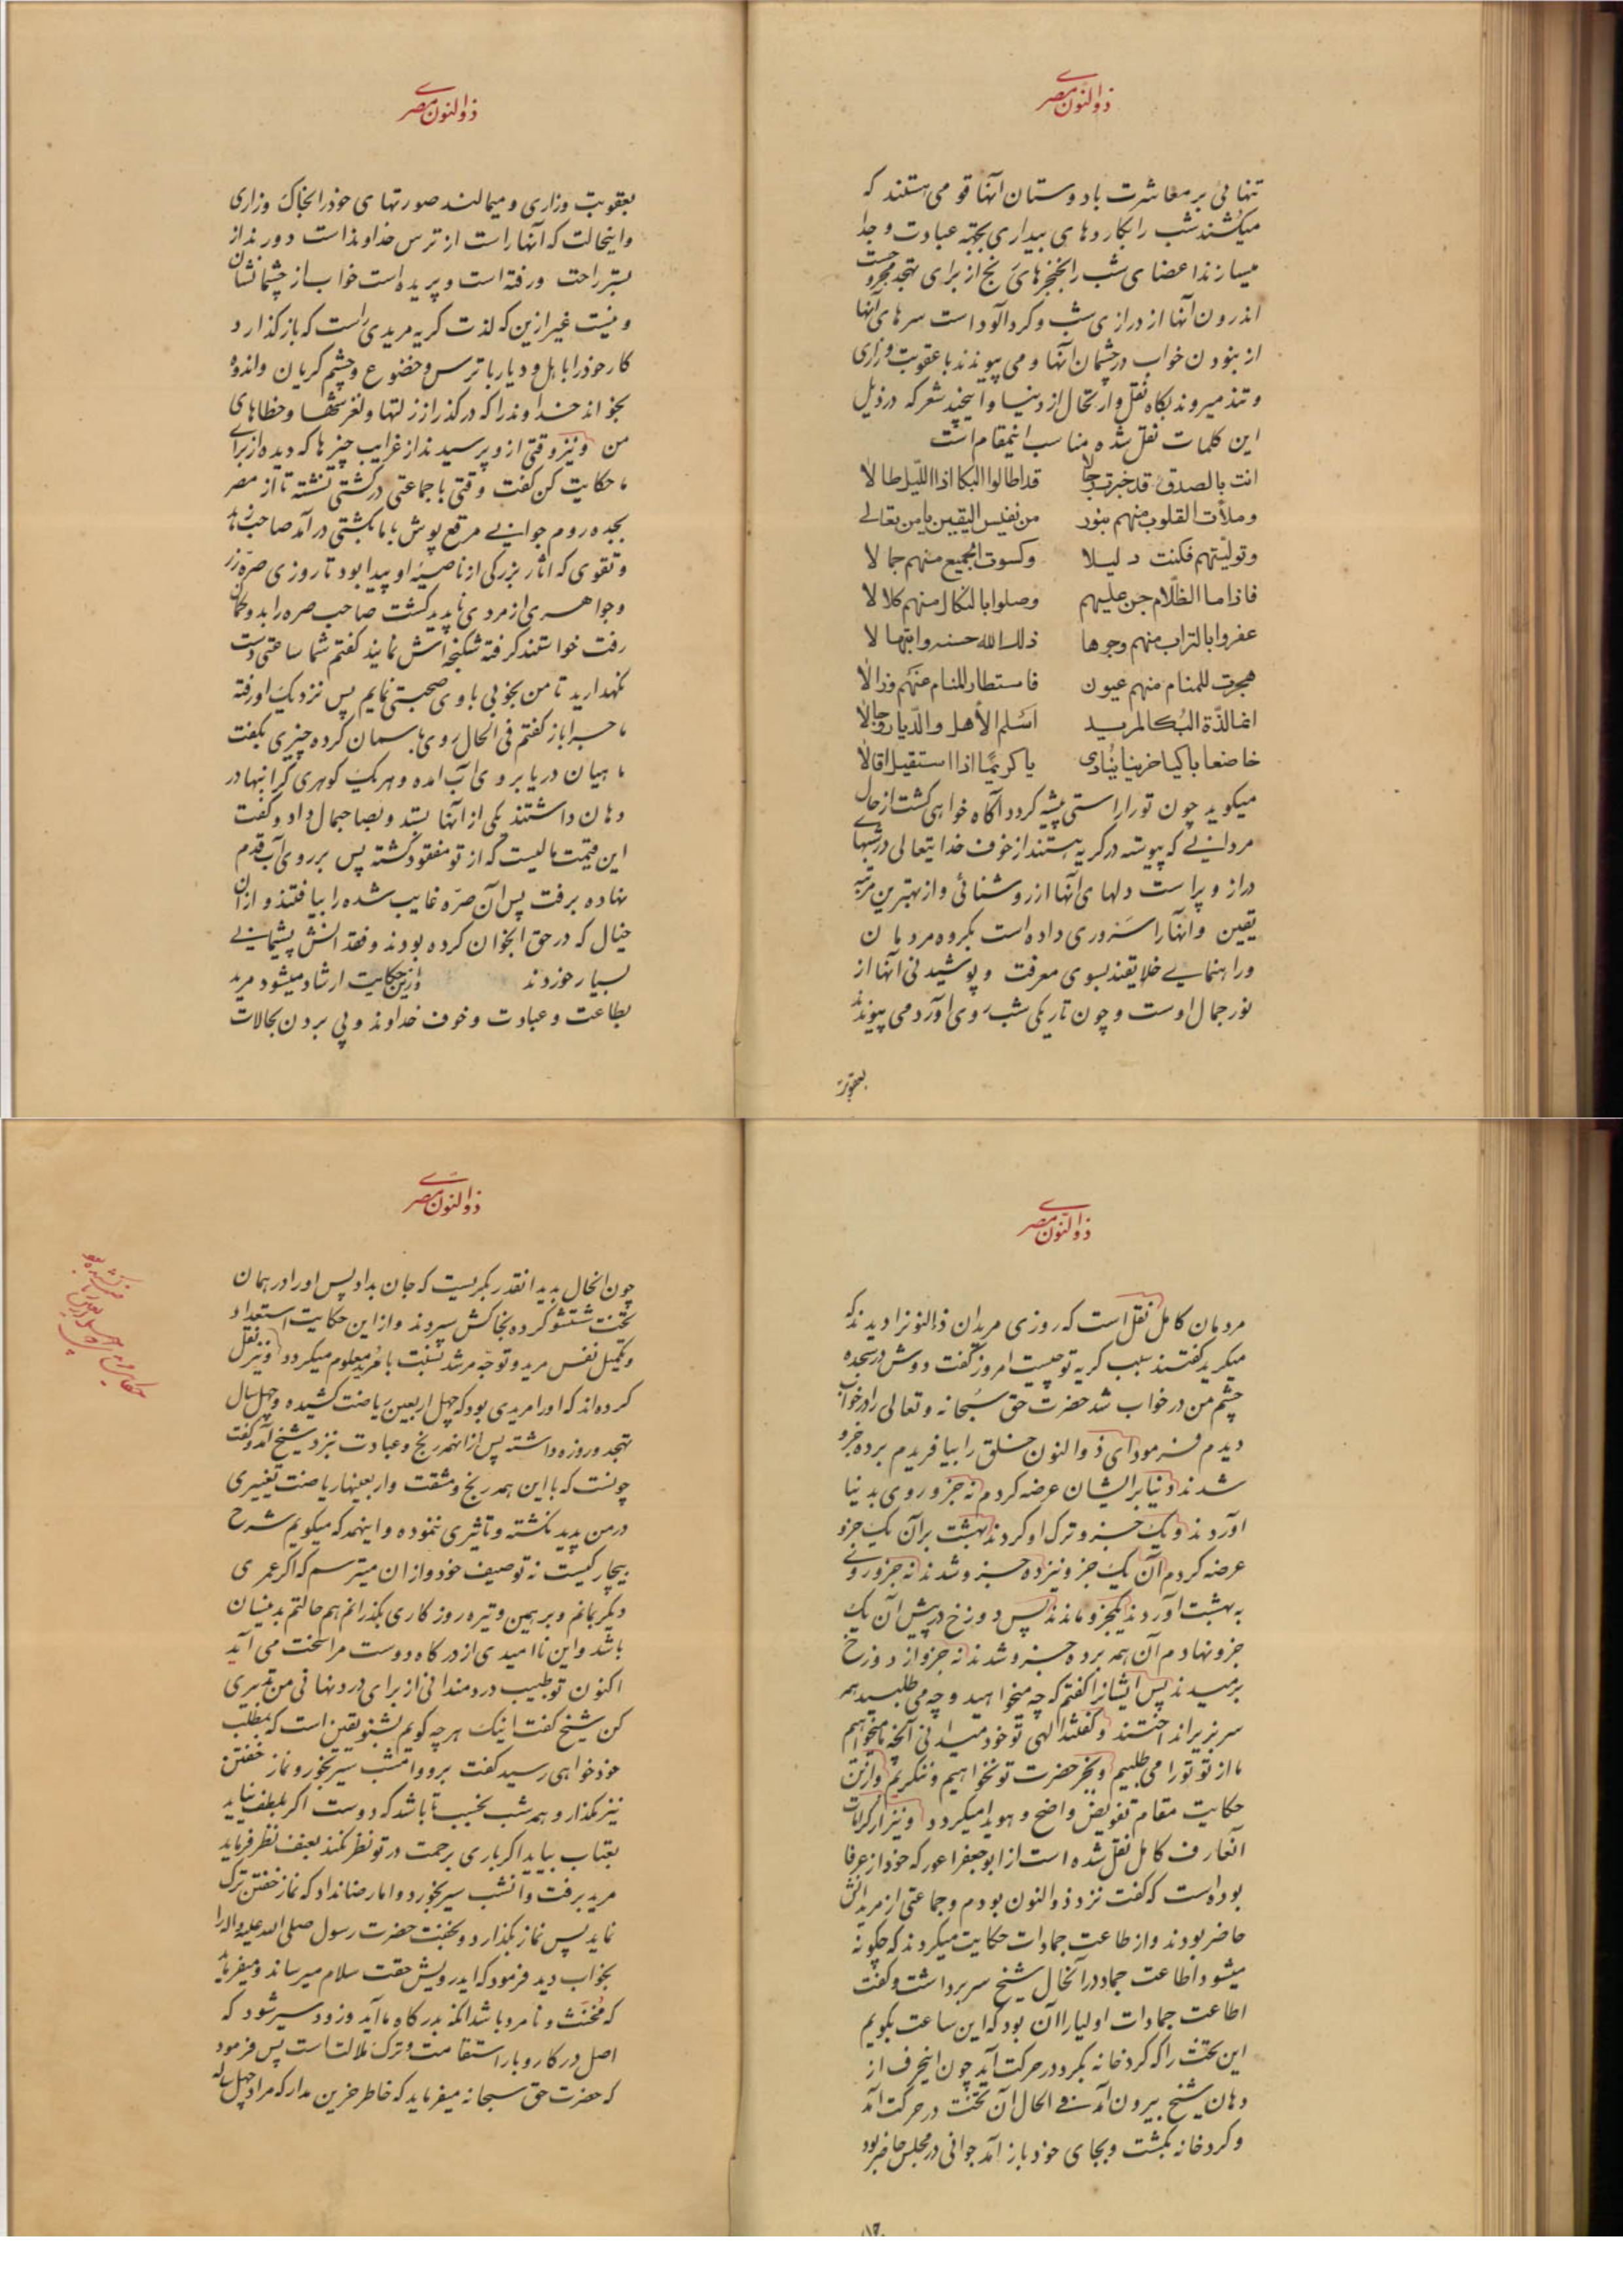 ذوالنون مصری
تنهائی بر معاشرت با دوستان آنها قومی هستند که
میکشند شب را بکاردهای بیداری بجهة عبادت و جدا
میسازند اعضای شب را بخنجرهای رنج از برای تهجد مجروحست
اندرون آنها از درازی شب و گردآلود است سرهای آنها
از نبودن خواب در چشمان آنها و می پیوندند با عقوبت وزاری
و تند میروند بگاه نقل و ارتحال از دنیا و اینچند شعر که در ذیل
این کلمات نقل شده مناسب اینمقام است
انت بالصدق قد خبرت رجالا
قد اطالوا البکا اذا اللیل طالا
وملأت القلوب منهم بنور
من نفیس الیقین یا من تعالی
وتولیتهم فکنت دلیلا
وکسوت الجمیع منهم جمالا
فاذا ما الظلام جن علیهم
وصلوا بالنکال منهم کلالا
عفروا بالتراب منهم وجوها
ذلک الله حسنه وابتهالا
هجرت للمنام منهم عیون
فاستطار المنام عنهم وزالا
انما لذة البکا لمرید
اسلم الأهل والدیار وجالا
خاضعا باکیا حزینا ینادی
یا کریما اذا استقیل اقالا
میگوید چون تو را راستی پیشه گردد آگاه خواهی گشت از حال
مردانی که پیوسته در گریه هستند از خوف خدایتعالی در شبهای
دراز و پر است دلهای آنها از روشنائی و از بهترین مرتبه
یقین و آنها را سروری داده است بگروه مردمان
و راهنمایی خلایقند بسوی معرفت و پوشیدنی آنها از
نور جمال اوست و چون تاریکی شب روی آورد می پیوندند
بعقوبت
ذوالنون مصری
بعقوبت وزاری و میمالند صورتهای خود را بخاک وزاری
و اینحالت که آنها راست از ترس خداوند است دور نداز
بستر راحت ورفته است و پریده است خواب از چشمانشان
و نیست غیر ازین که لذت گریه مریدی راست که باز گذارد
کار خود را با اهل و دیار با ترس و خضوع و چشم گریان و اندوه
بخواند خداوند را که درگذر از زلتها و لغزشها و خطاهای
من و نیز وقتی ازو پرسیدند از غرایب چیزها که دیده از برای
ما حکایت کن گفت وقتی با جماعتی در کشتی نشسته تا از مصر
بجده روم جوانی مرقع پوش با ما بکشتی در آمد صاحب زهد
و تقوی که آثار بزرگی از ناصیه او پیدا بود تا روزی صره زر
و جواهری از مردی ناپدید گشت صاحب صره را بدو گمان
رفت خواستند گرفته شکنجه اش نمایند گفتم شما ساعتی دست
نگهدارید تا من بخوبی با وی صحبتی نمایم پس نزدیک او رفته
ماجرا باز گفتم فی الحال روی بآسمان کرده چیزی بگفت
ماهیان دریا بروی آب آمده و هریک گوهری گرانبها در
دهان داشتند یکی از آنها بستد و بصاحب مال داد و گفت
این قیمت مالیست که از تو مفقود گشته پس بر روی آب قدم
نهاده برفت پس آن صره غایب شده را بیافتند و از آن
خیال که در حق آنجوان کرده بودند و فقدانش پشیمانی
بسیار خوردند ازین حکایت ارشاد میشود مرید
بطاعت و عبادت و خوف خداوند و پی بردن بحالات
ذوالنون مصری
مردمان کامل نقل است که روزی مریدان ذالنونرا دیدند که
میگرید گفتند سبب گریه تو چیست امروز گفت دوش در سجده
چشم من در خواب شد حضرت حق سبحانه و تعالی را در خواب
دیدم فرمود ای ذوالنون خلق را بیافریدم برده جزو
شدند دنیا بر ایشان عرضه کردم نه جزو روی بدنیا
آوردند و یک جزو ترک او کردند بهشت بر آن یک جزو
عرضه کردم آن یک جزو نیز ده جزو شدند نه جزو روی
به بهشت آوردند یکجزو ماندند پس دوزخ در پیش آن یک
جزو نهادم آن هم برده جزو شدند نه جزو از دوزخ
برمیدند پس ایشانرا گفتم که چه میخواهید و چه می طلبید همه
سر بزیر انداختند و گفتند الهی تو خود میدانی آنچه ما میخواهیم
ما از تو تو را می طلبیم و بجز حضرت تو نخواهیم و ننگریم و ازین
حکایت مقام تفویض واضح و هویدا میگردد و نیز از کرامات
آنعارف کامل نقل شده است از ابوجعفر اعور که خود از عرفا
بوده است که گفت نزد ذوالنون بودم و جماعتی از مریدانش
حاضر بودند و از طاعت جمادات حکایت میکردند که چگونه
میشود اطاعت جماد در آنحال شیخ سر برداشت و گفت
اطاعت جمادات اولیا را آن بود که این ساعت بگویم
این تخت را که گرد خانه بگرد در حرکت آید چون اینحرف از
دهان شیخ بیرون آمد فی الحال آن تخت در حرکت آمد
و گرد خانه بگشت و بجای خود باز آمد جوانی در مجلس حاضر بود
ذوالنون مصری
چون آنحال بدید آنقدر بگریست که جان بداد پس او را در همان
تخت شستشو کرده بخاکش سپردند و از این حکایت استعداد
و تکمیل نفس مرید و توجه مرشد نسبت بامرید معلوم میگردد و نیز نقل
کرده اند که او را مریدی بود که چهل اربعین ریاضت کشیده و چهل سال
تهجد و روزه داشته پس از آنهمه رنج و عبادت نزد شیخ آمد و گفت
چونست که با این همه رنج و مشقت و اربعینها ریاضت تغییری
در من پدید نگشته و تاثیری ننموده و اینهمه که میگویم شرح
بیچارگیست نه توصیف خود و از آن میترسم که اگر عمری
دیگر بمانم و بر همین وتیره روزگاری بگذرانم هم حالتم بدینسان
باشد و این ناامیدی از درگاه دوست مرا سخت می آید
اکنون تو طبیب دردمندانی از برای درد نهانی من تدبیری
کن شیخ گفت اینک هرچه گویم بشنو یقین است که بمطلب
خود خواهی رسید گفت برو و امشب سیر بخور و نماز خفتن
نیز مگذار و همه شب بخسب تا باشد که دوست اگر بلطف نیاید
بعتاب بیاید اگر باری برحمت در تو نظر نکند بعنف نظر فرماید
مرید برفت و آنشب سیر بخورد و اما رضا نداد که نماز خفتن ترک
نماید پس نماز بگذارد و بخفت حضرت رسول صلی الله علیه و آله را
بخواب دید فرمود که ایدرویش حقت سلام میرساند و میفرماید
که مخنث و نامرد باشد آنکه بدرگاه ما آید و زود سیر شود که
اصل در کار و بار استقامت و ترک ملالت است پس فرمود
که حضرت حق سبحانه میفرماید که خاطر حزین مدار که مراد چهل ساله